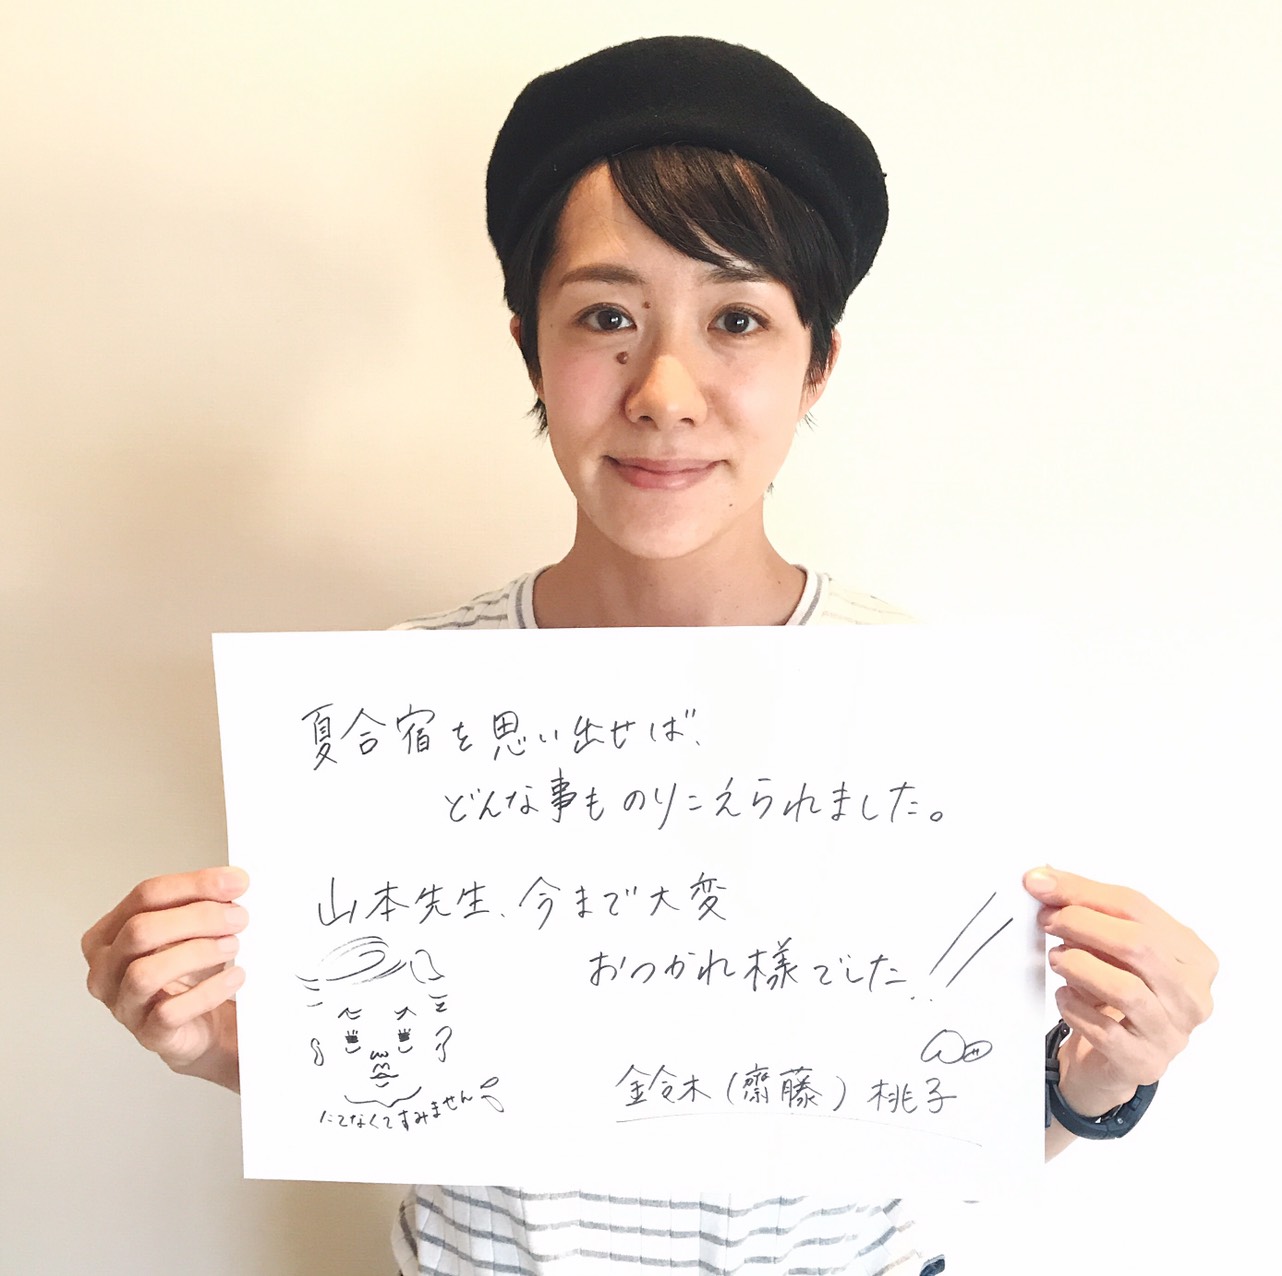 夏合宿を思い出せば、
どんな事ものりこえられました。
山本先生、今まで大変
おつかれ様でした!!
にてなくてすみません
鈴木(齋藤)桃子